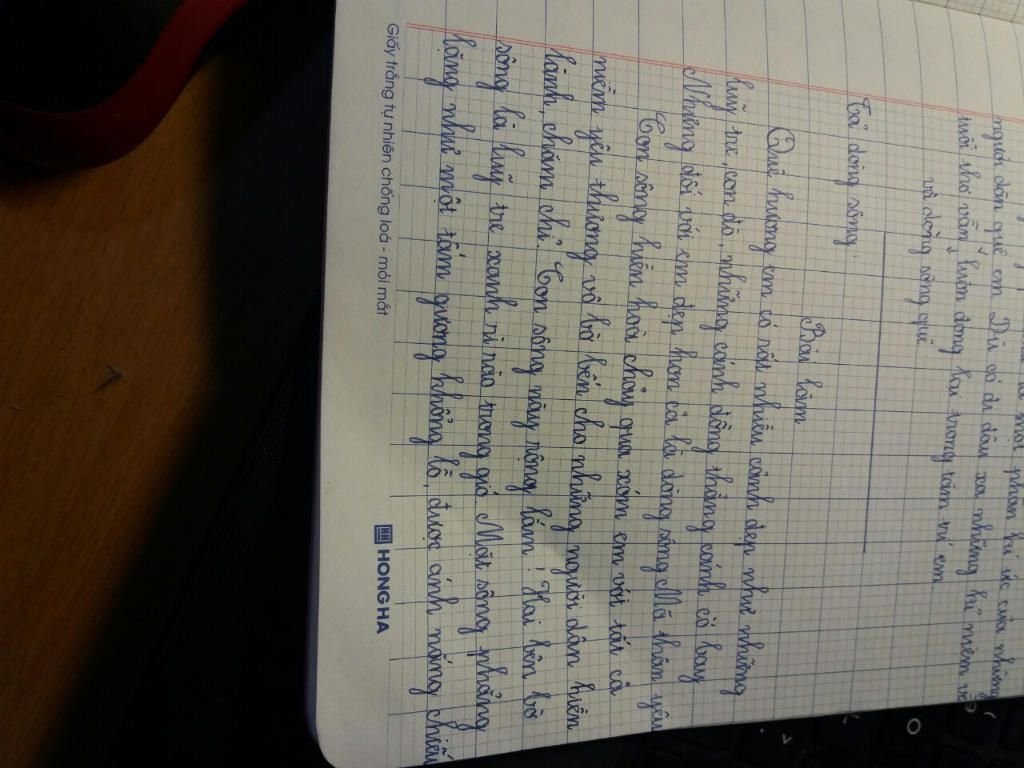 một phần kí ức của những
người dân quê em. Dù có đi đâu xa những kỉ niệm về
tuổi thơ vẫn luôn đọng lại trong tâm trí em
về dòng sông quê.
Tả dòng sông.
Bài làm
Quê hương em có rất nhiều cảnh đẹp như những
luỹ tre, con đò, những cánh đồng thẳng cánh cò bay.
Nhưng đối với em đẹp hơn cả là dòng sông Mã thân yêu
Con sông hiền hoà chảy qua xóm em với tất cả
niềm yêu thương vô bờ bến cho những người dân hiền
lành, chăm chỉ. Con sông này rộng lắm! Hai bên bờ
sông là luỹ tre xanh rì rào trong gió. Mặt sông phẳng
lặng như một tấm gương khổng lồ, được ánh nắng chiếu
Giấy trắng tự nhiên chống loá - mỏi mắt
HONG HA